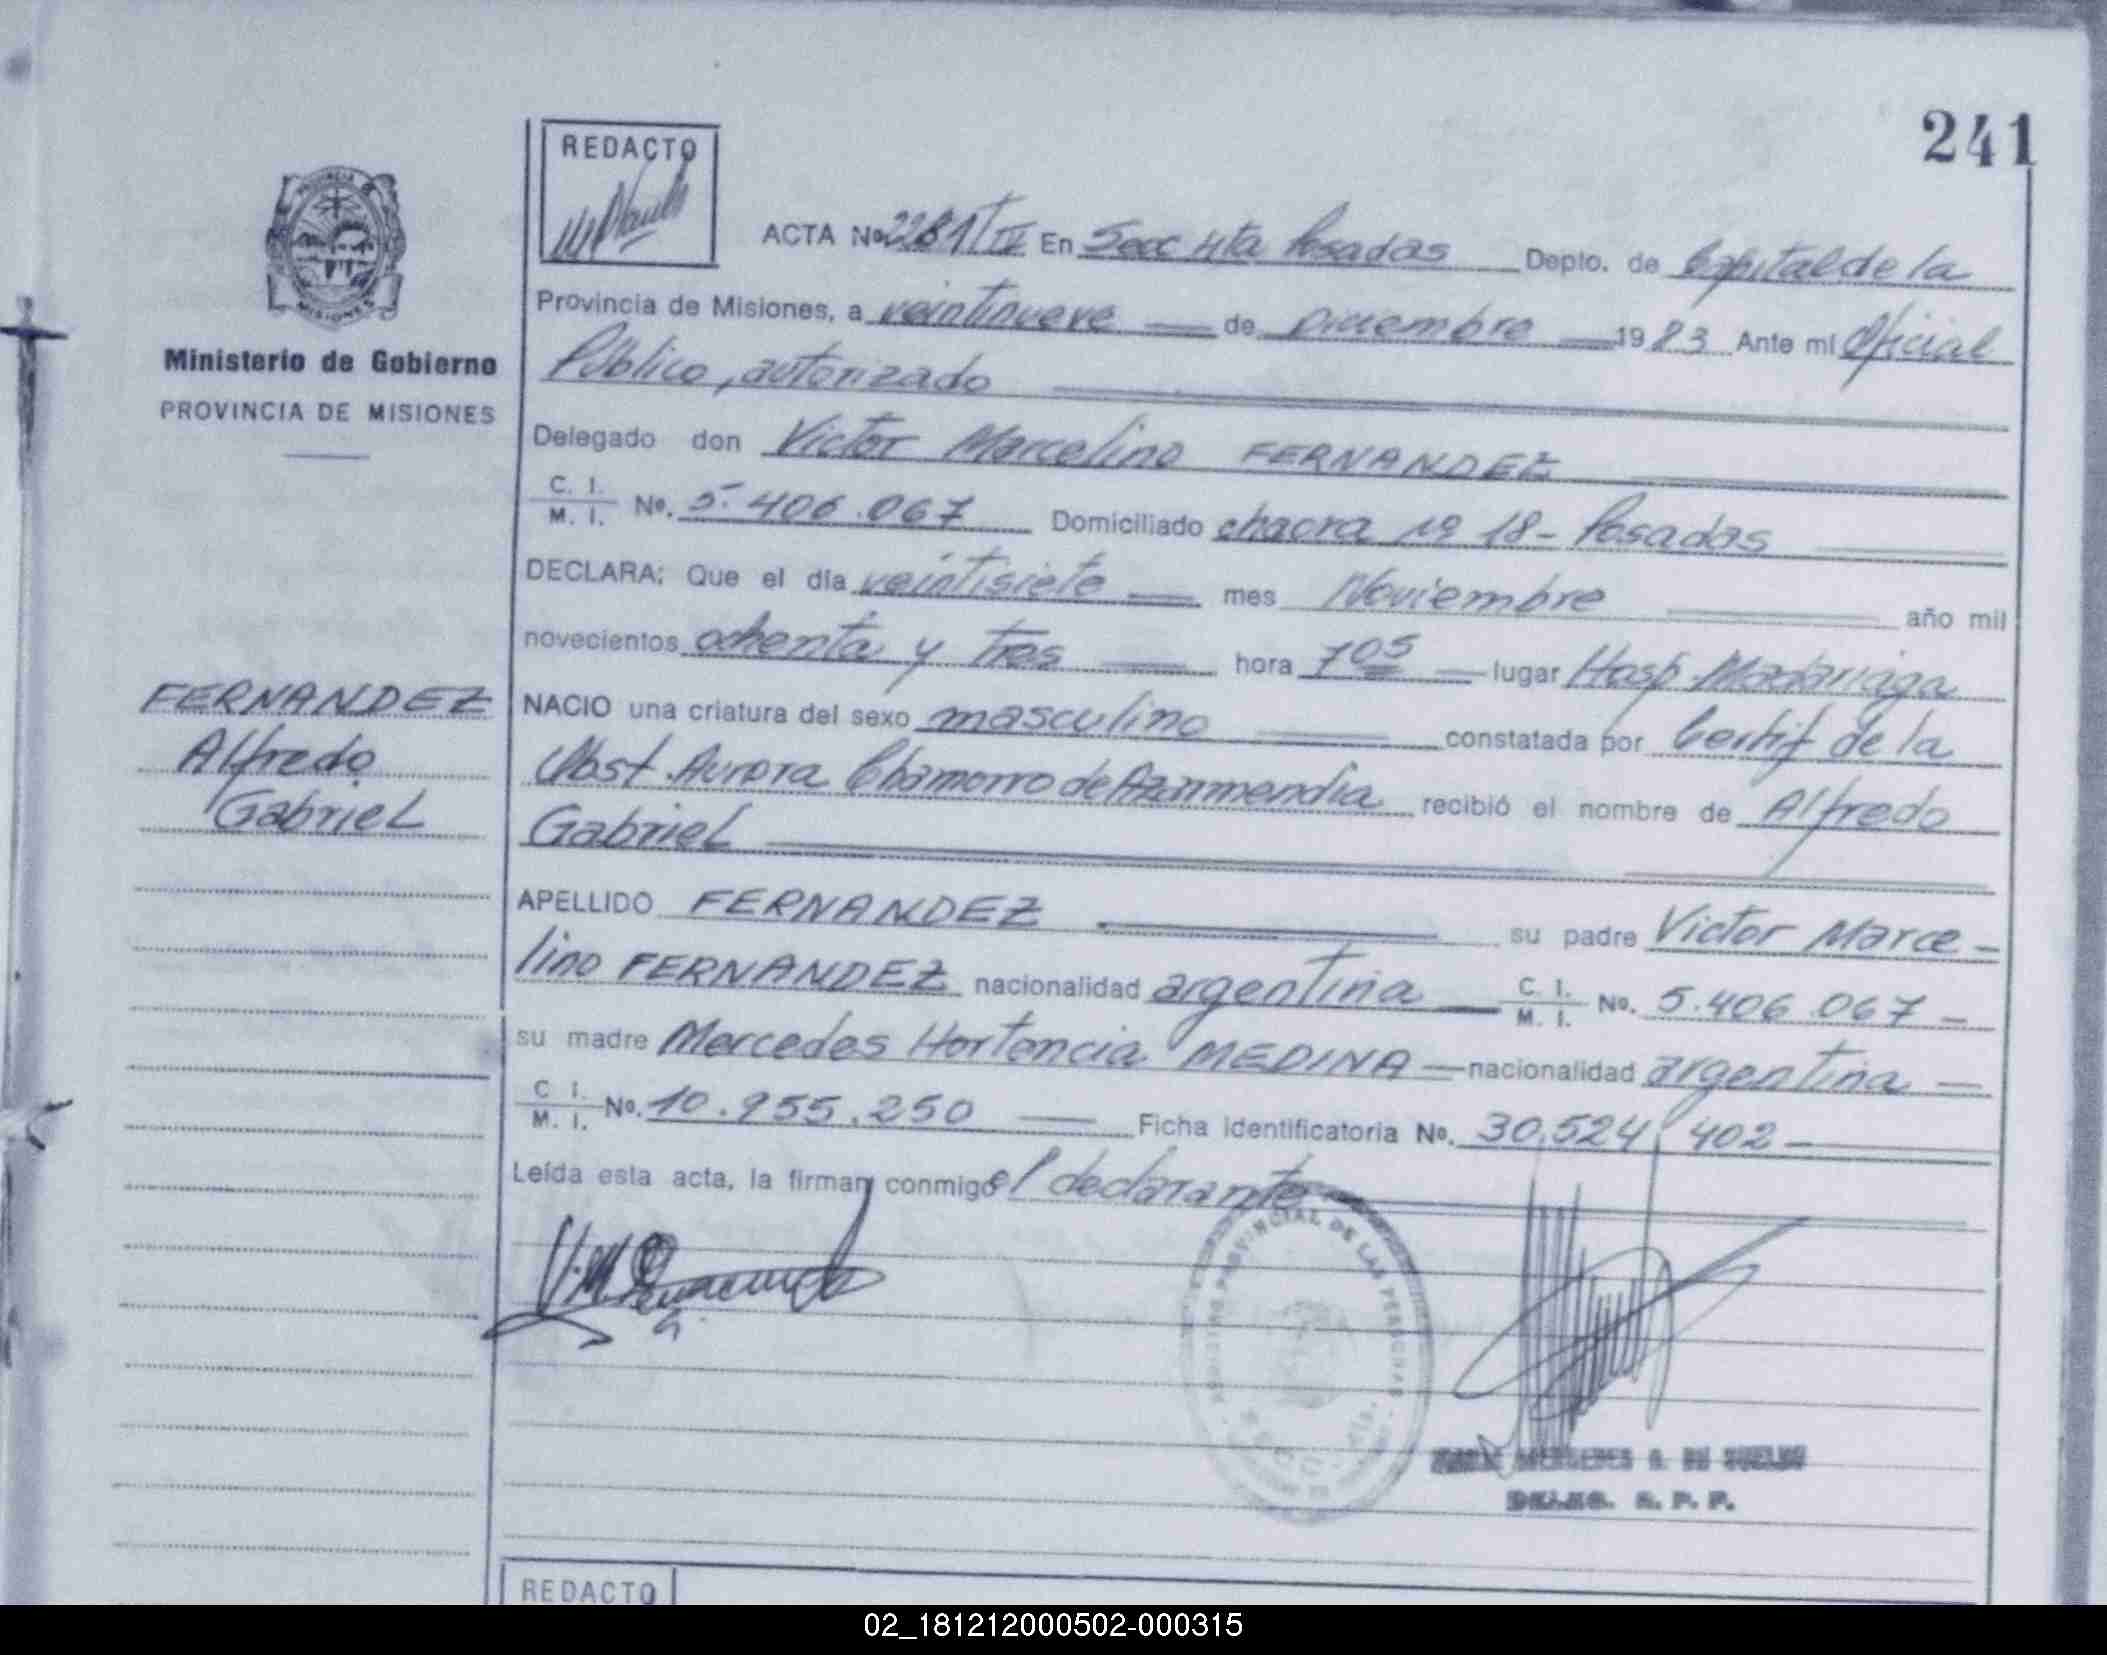 241
REDACTO
ACTA Nº 2281/IV En Secc 4ta Posadas Depto. de Capital de la
Provincia de Misiones, a veintinueve de Diciembre 1983 Ante mi Oficial
Ministerio de Gobierno
PROVINCIA DE MISIONES
Público, autorizado
Delegado don Victor Marcelino FERNANDEZ
C. I. M. I. Nº. 5.406.067 Domiciliado chacra nº 18 - Posadas
DECLARA: Que el día veintisiete mes Noviembre año mil
novecientos ochenta y tres hora 7 05 lugar Hosp. Madariaga
FERNANDEZ
Alfredo
Gabriel
NACIO una criatura del sexo masculino constatada por Certif de la
Obst. Aurora Chamorro de recibió el nombre de Alfredo
Gabriel
APELLIDO FERNANDEZ su padre Victor Marce-
lino FERNANDEZ nacionalidad argentina C. I. M. I. Nº. 5.406.067 -
su madre Mercedes Hortencia MEDINA nacionalidad argentina
C. I. M. I. Nº. 10.955.250 Ficha identificatoria Nº. 30.524.402 -
Leída esta acta, la firman conmigo el declarante
PROVINCIAL DE LAS PERSONAS
REDACTO
02_181212000502-000315